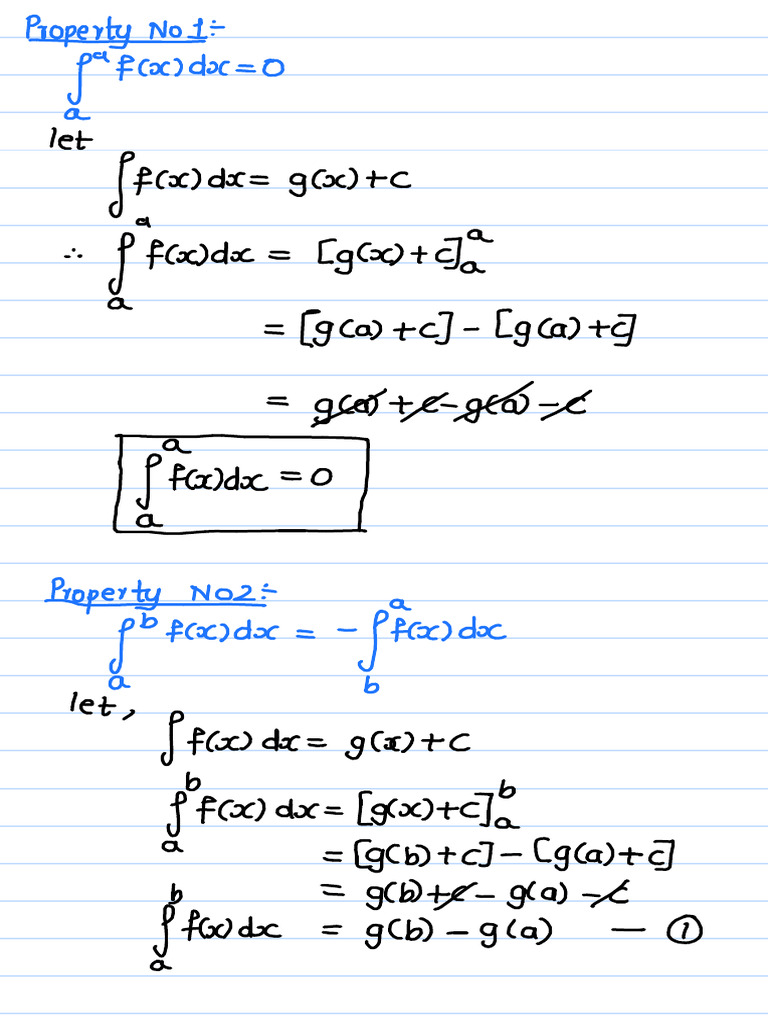 Property No 1:-
∫ₐᵃ f(x) dx = 0
let
∫ f(x) dx = g(x) + c
∴ ∫ₐᵃ f(x) dx = [g(x) + c]ₐᵃ
= [g(a) + c] - [g(a) + c]
= g(a) + c - g(a) - c
∫ₐᵃ f(x) dx = 0
Property No 2:-
∫ₐᵇ f(x) dx = - ∫ᵦᵃ f(x) dx
let,
∫ f(x) dx = g(x) + c
∫ₐᵇ f(x) dx = [g(x) + c]ₐᵇ
= [g(b) + c] - [g(a) + c]
= g(b) + c - g(a) - c
∫ₐᵇ f(x) dx = g(b) - g(a) — ①